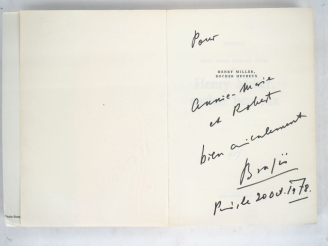 Pour
HENRY MILLER,
ROCHER HEUREUX
Annie-Marie
et Robert
bien amicalement
Brassaï
Paris, le 20 Oct. 1978.